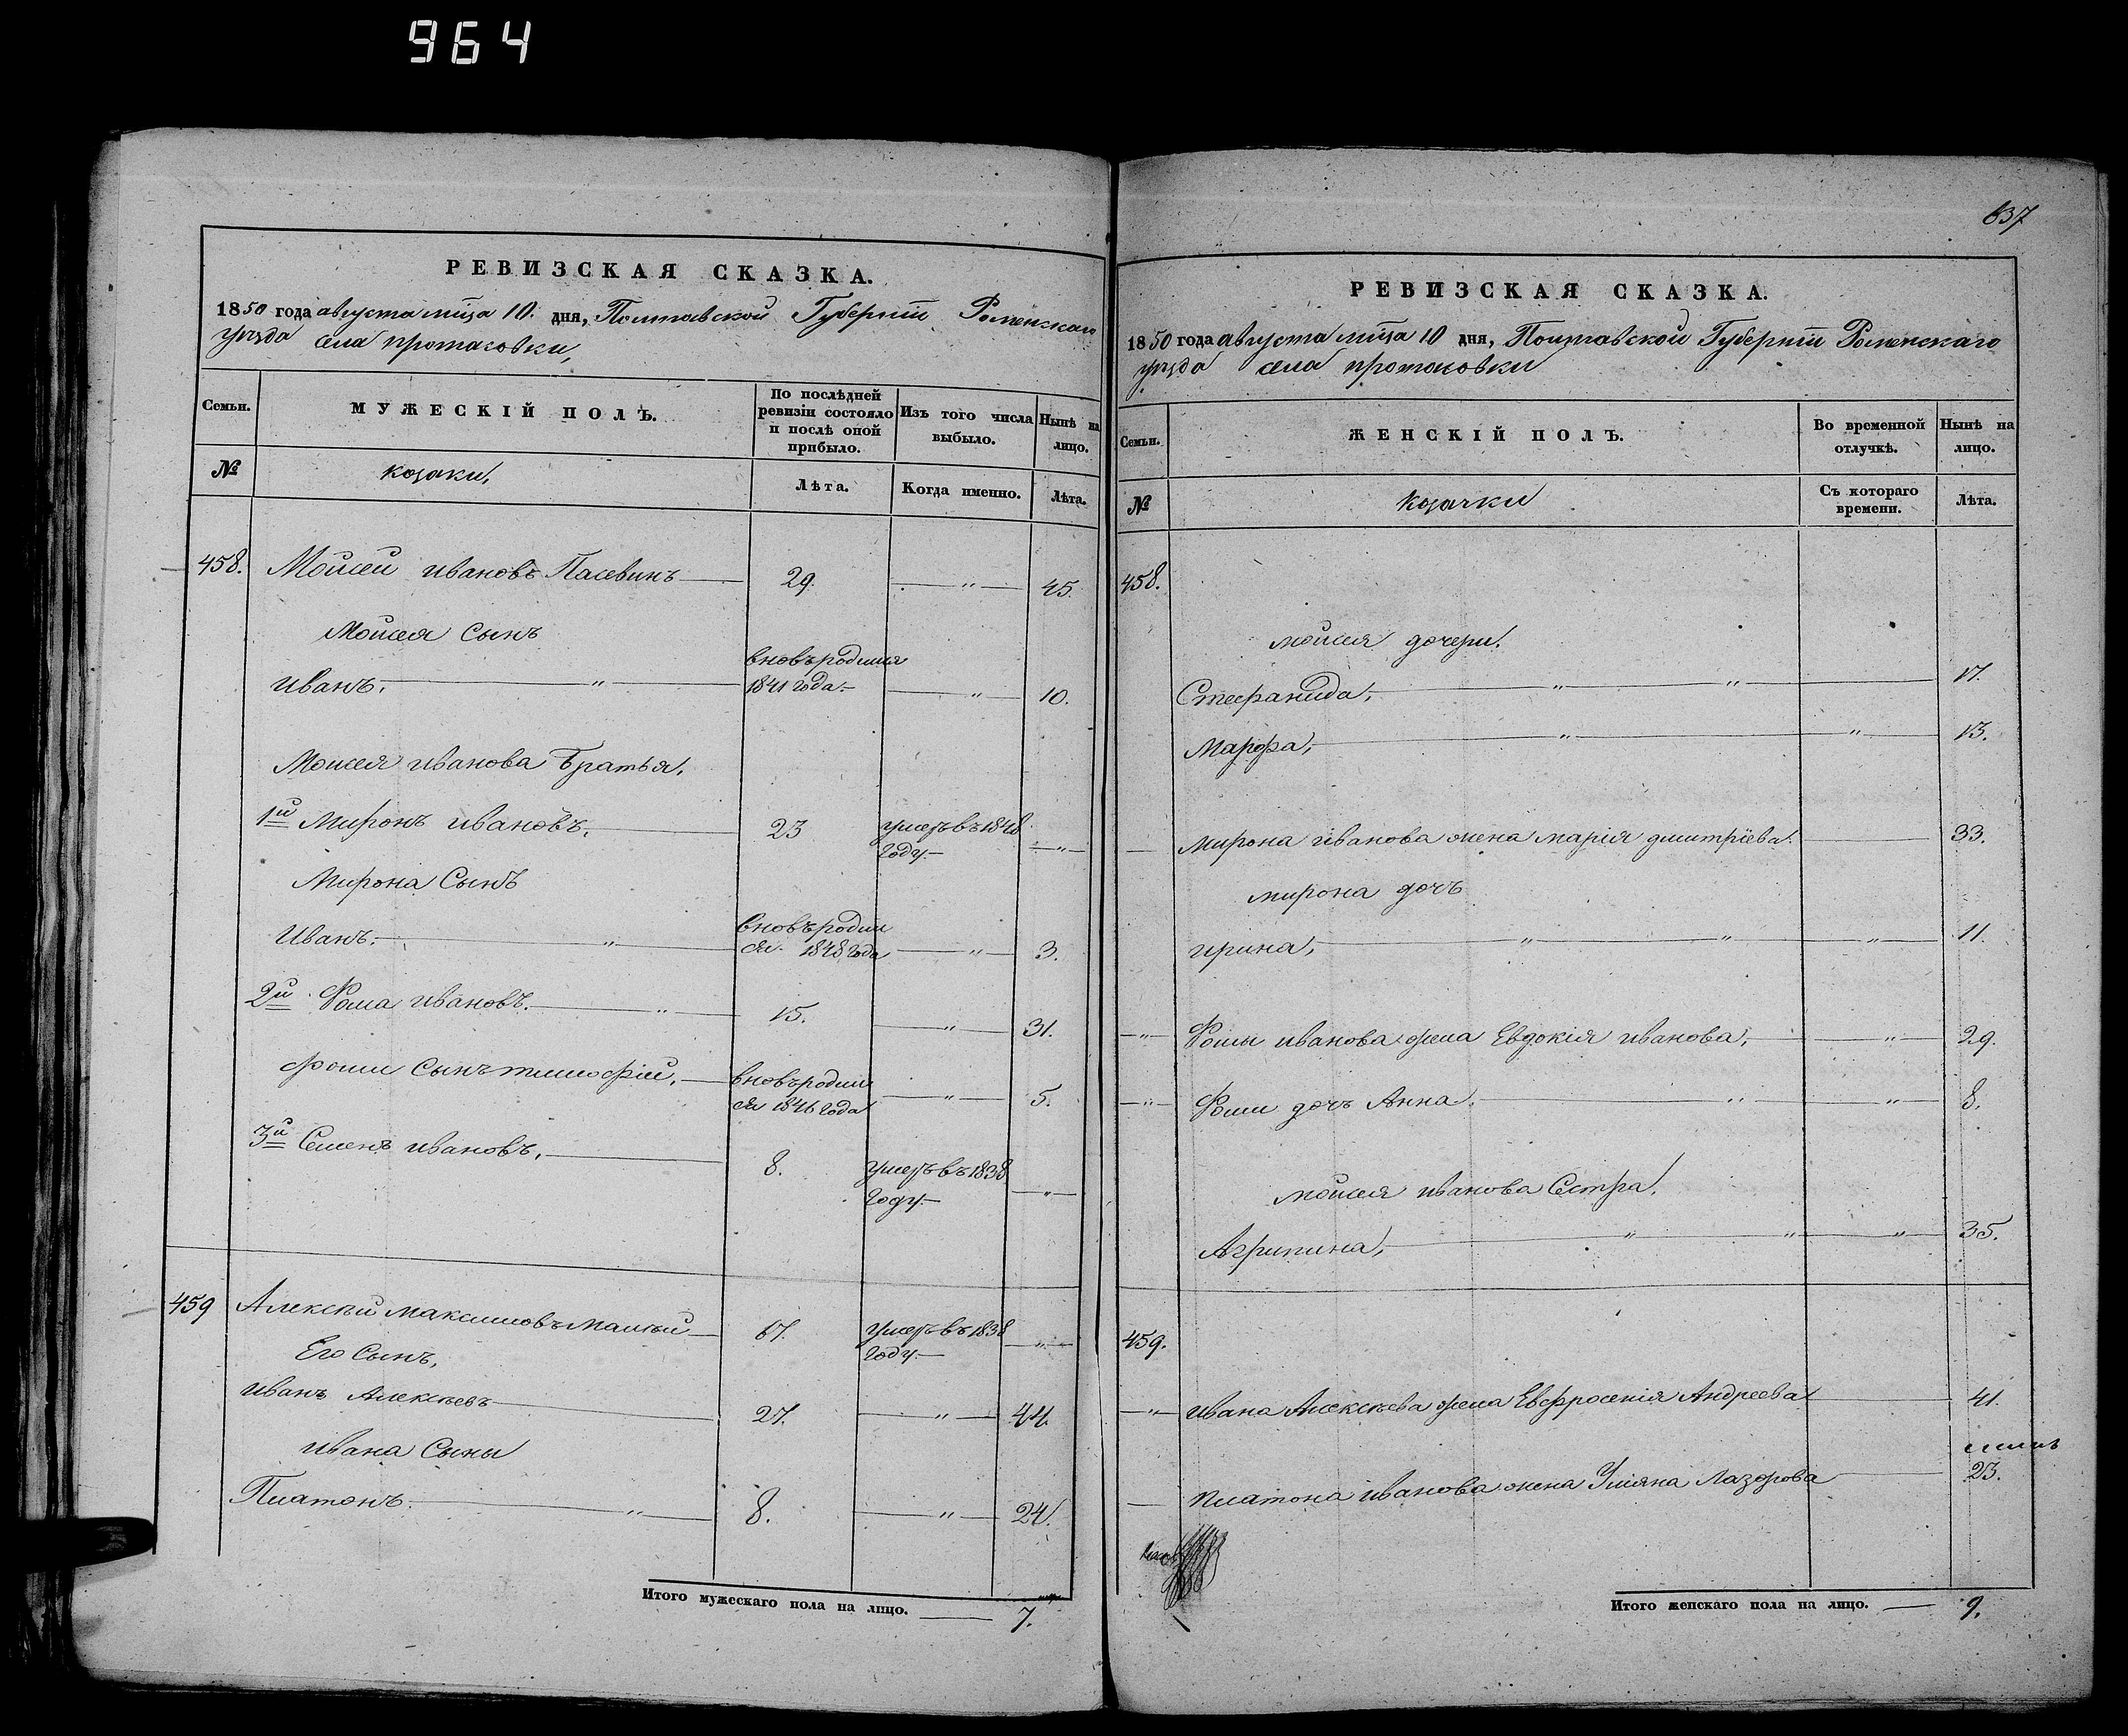 964
РЕВИЗСКАЯ СКАЗКА.
1850 года августа мца 10. дня, Полтавской Губерніи Роменскаго
уезда села протасовки,
Семьи. МУЖЕСКІЙ ПОЛЪ. По послѣдней ревизіи состояло и послѣ оной прибыло. Изъ того числа выбыло. Нынѣ на лицо.
№ козаки, Лѣта. Когда именно. Лѣта.
458. Мойсей ивановъ 29. " 45.
Мойсея Сынъ
иванъ. " вновь родился 1841 года " 10.
Мойсея иванова братья,
1й Миронъ ивановъ, 23 умеръ въ 1848 году "
Мирона Сынъ
Иванъ. " вновь родился 1848 года " 3.
2й Фома ивановъ. " 15. " 31.
фомы Сынъ тимофій, вновь родился 1846 года " 5.
3й Семенъ ивановъ, 8. умеръ въ 1838 году "
459 Алексѣй максимовъ Малый 67. умеръ въ 1838 году "
Его Сынъ,
иванъ Алексѣевъ 27. " 44.
ивана Сыны
Платонъ. " 8. " 24.
Итого мужескаго пола на лицо. 7.
637
РЕВИЗСКАЯ СКАЗКА.
1850 года августа мца 10 дня, Полтавской Губерніи Роменскаго
уезда села протасовки
Семьи. ЖЕНСКІЙ ПОЛЪ. Во временной отлучкѣ. Нынѣ на лицо.
№ Козачки Съ котораго времени. Лѣта.
458.
мойсея дочери.
Стефанида, " " 17.
Марфа, " " 13.
мирона иванова жена марія дмитріева. 33.
мирона дочъ
ирина, " " " 11.
" Фомы иванова жена Евдокія иванова, " 29.
" Фомы дочъ Анна. " " 8.
мойсея иванова Сестра,
Агрипина, " " " 35.
459.
" ивана Алексѣева жена Евфросенія Андреева 41.
платона иванова жена Уліяна Лазорова 23.
Итого женскаго пола на лицо. 9.